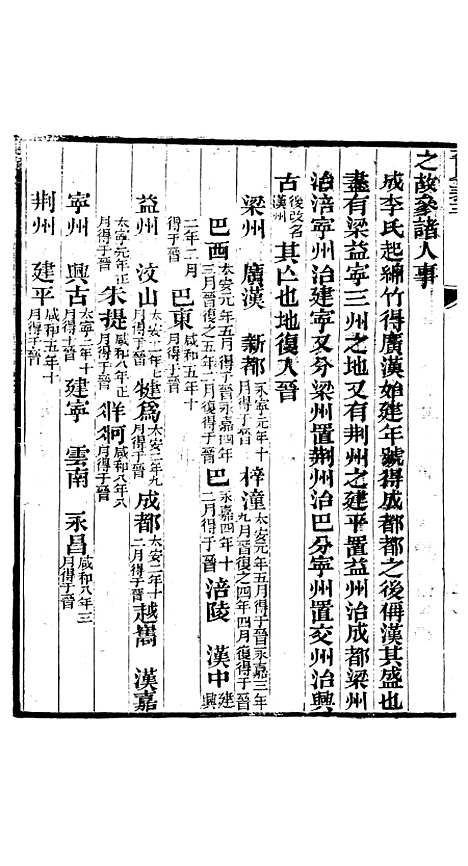 之故參諸人事
成李氏起綿竹得廣漢始建年號得成都都之後偁漢其盛也
盡有梁益寧三州之地又有荆州之建平置益州治成都梁州
治涪寧州治建寧又分梁州置荆州治巴分寧州置交州治興
古後改名漢州其亡也地復入晉
梁州 廣漢 新都永寧元年十月得于晉梓潼太安元年五月得于晉永嘉三年九月晉復之四年四月復得于晉
巴西太安元年五月得于晉永嘉四年三月晉復之五年二月復得于晉巴永嘉四年十二月得于晉涪陵 漢中建興
二年二月得于晉 巴東咸和五年十月得于晉
益州 汶山太安二年正月得于晉犍爲太安二年九月得于晉成都太安二年十二月得于晉越嶲 漢嘉
太寧元年正月得于晉朱提咸和八年正月得于晉牂牁咸和八年八月得于晉
寧州 興古太寧二年十月得于晉建寧 雲南 永昌咸和八年三月得于晉
荆州 建平咸和五年十月得于晉